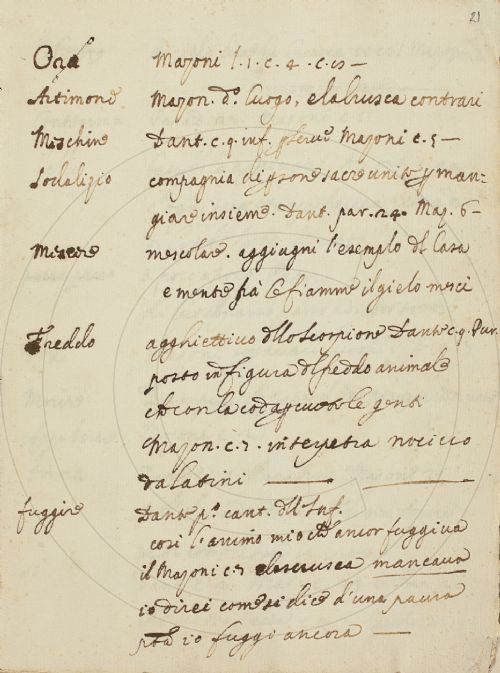 21
Ora Mazoni l. 1. c. 4. c. 15 —
Artimone Mazon. d.º luogo, e la brusca contrari
Meschine Dant. c. 9. inf. p serve Mazoni c. 5 —
Sodalizio compagnia di psone sacre unite p man=
giare insieme. Dant. par. 24. Maz. 6 —
Mescere mescolare. aggiugni l'esempio del Casa
e mentre fra le fiamme il gielo mesci
Freddo agghiettivo dello scorpione Dante c. 9. Pur.
posto in figura del freddo animale
che con la coda pcuote le genti
Mazon. c. 7. interpetra nocivo
da latini
fuggire Dante p.º cant. dell'Inf.
così l'animo mio ch'ancor fuggiva
il Mazoni c. 7 mancava
io direi come si dice d'una paura
io fuggi ancora —